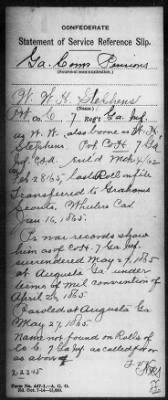 CONFEDERATE
Statement of Service Reference Slip.
Ga. Comr Pensions
(Name of communication.)
W. W. H. Stephens
Co. C, 7 Reg't Ga. Inf.
as W. W. also borne as W. H.
Stephens, Pvt Co. H, 7 Ga.
Inf. Csa. enl'd 4/62
Feb 28/65, last Roll on file
Transferred to Grahams
Scouts, Wheelers Cav
Jan. 16, 1865.
Pr. war records show
him as of Co. H. 7 Ga. Inf.
surrendered May 27, 1865
at Augusta Ga. under
terms of mil convention of
April 26, 1865
Paroled at Augusta Ga
May 27, 1865
Name not found on Rolls of
Co. C, 7 Ga. Inf as called for or
as above
2-23-15
Form No. 447-1—A. G. O.
Ed. Oct. 7-14—25,000.